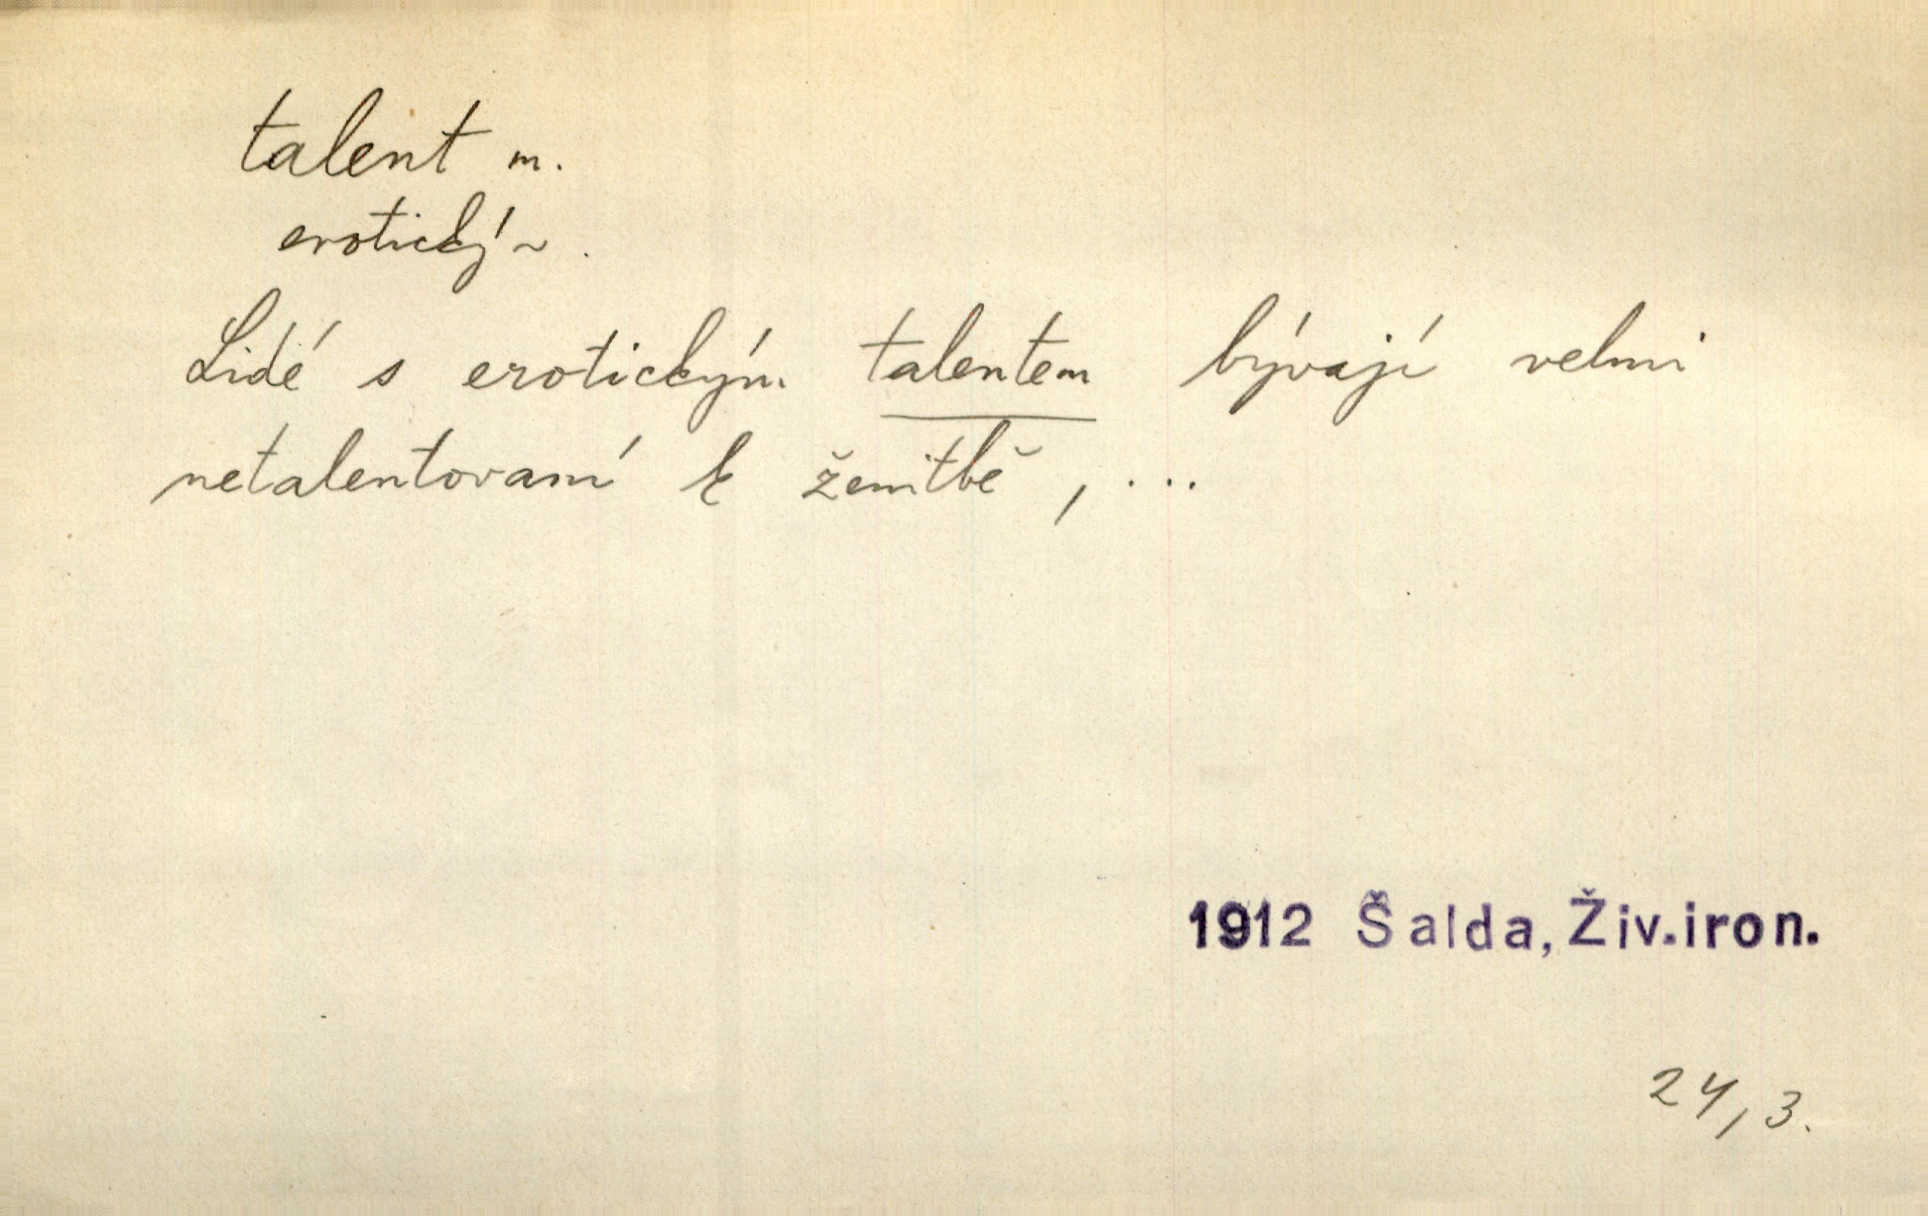 talent m.
erotický ~.
Lidé s erotickým talentem bývají velmi
netalentovaní k ženitbě, ...
1912 Šalda, Živ.iron.
24, 3.